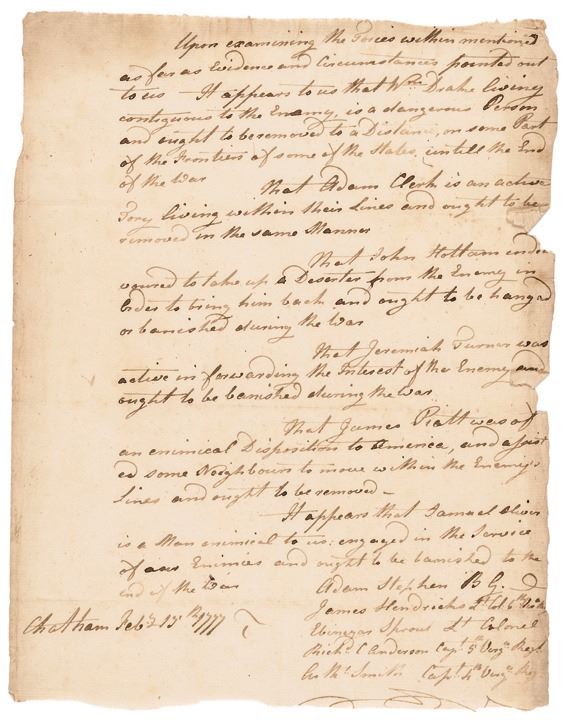 Upon examining the Forces within mentioned
as far as Evidence and Circumstances pointed out
to us It appears to us that Wm Drake living
contiguous to the Enemy, is a dangerous Person
and ought to be removed to a Distance, on some Part
of the Frontiers of some of the States, untill the End
of the War
That Adam Clerk is an active
Tory living within their Lines and ought to be
removed in the same Manner
That John Hottam endea
voured to take up a Deserter from the Enemy in
Order to bring him back and ought to be hanged
or banished during the War
That Jeremiah Turner was
active in forwarding the Interest of the Enemy and
ought to be banished during the War
That James Piatt was of
an enimical Disposition to America, and assist
ed some Neighbours to move within the Enemy's
Lines and ought to be removed –
It appears that Samuel Oliver
is a Man enimical to us: engaged in the Service
of our Enimies and ought to be banished to the
End of the War
Adam Stephen B G.
James Hendricks Lt Col 6th
Chatham Feby 15th 1777
Ebenezar Sprout Lt Colonel
Richd C Anderson Capt 5th Virga Regt
Smith Capt 4th Virga Reg